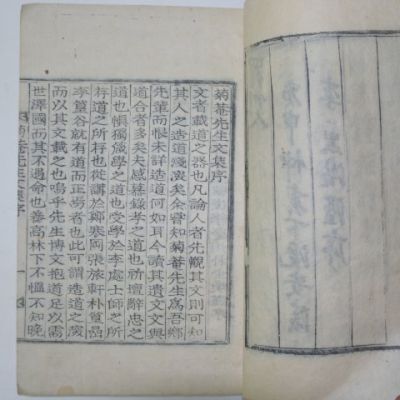 菊菴先生文集序
文者載道之器也凡論人者先觀其文則可知
其人之造道淺深矣余嘗知菊菴先生爲吾鄕
先輩而恨未詳造道何如耳今讀其遺文文與
道合者多矣夫感錄孝之道也祈壇辭忠之
道也惧獨箴學之道也受學於李處士師之所
存道之所存也從講於鄭寒岡張旅軒朴篁嵒
李篔谷就有道而正者也此可謂造道之深
而以其文載之也嗚呼先生博文抱道足以需
世澤國而其不遇命也善高林下不慍不知晚
菊菴先生文集序 一